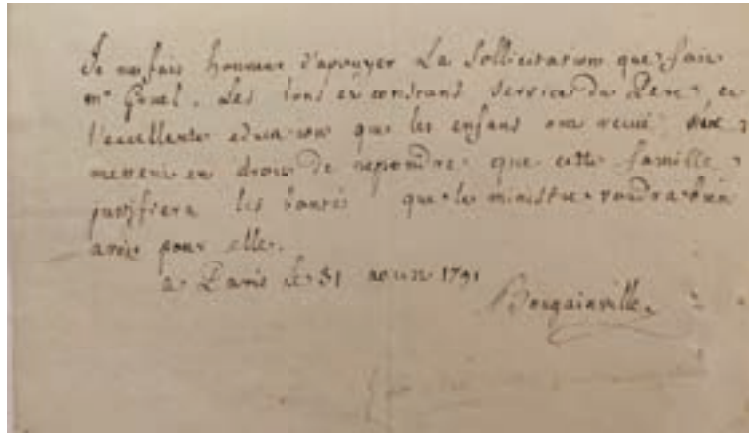 Je me fais honneur d'apuyer La Sollicitation que fait
mr Gruel. Les bons et constans service du Pere, et
l'excellente education que les enfans ont reçue me
mettent en droit de repondre que cette famille
justifiera les bontés que le ministre voudra bien
avoir pour elle.
a Paris le 31 aoust 1791
Bougainville